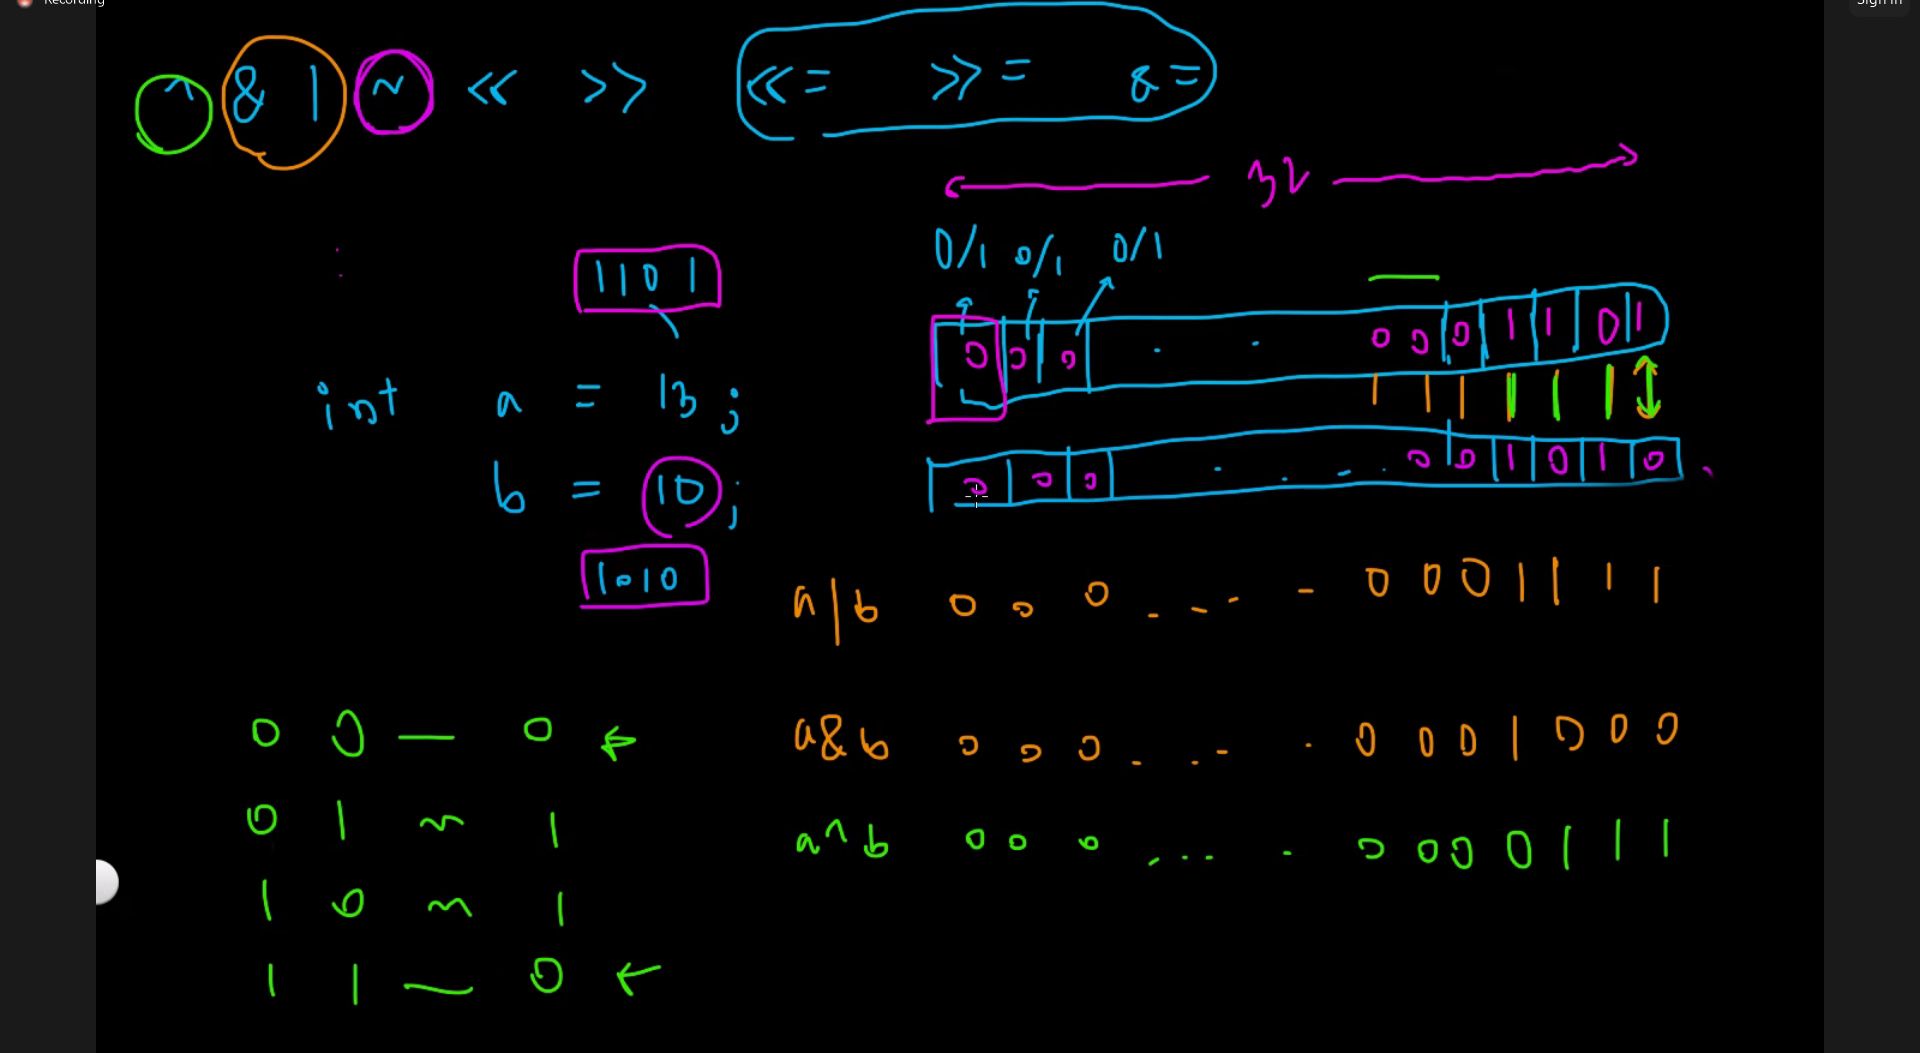 Recording
Sign in
^ & | ~ << >> <<= >>= &=
32
0/1 0/1 0/1
1101
0 0 0 . . 0 0 0 1 1 0 1
int a = 13;
b = 10;
0 0 0 . . - . 0 0 1 0 1 0
1010
a|b 0 0 0 . - - - 0 0 0 1 1 1 1
a&b 0 0 0 . . - . 0 0 0 1 0 0 0
a^b 0 0 0 . . . . 0 0 0 0 1 1 1
0 0 — 0 ←
0 1 ~ 1
1 0 ~ 1
1 1 — 0 ←